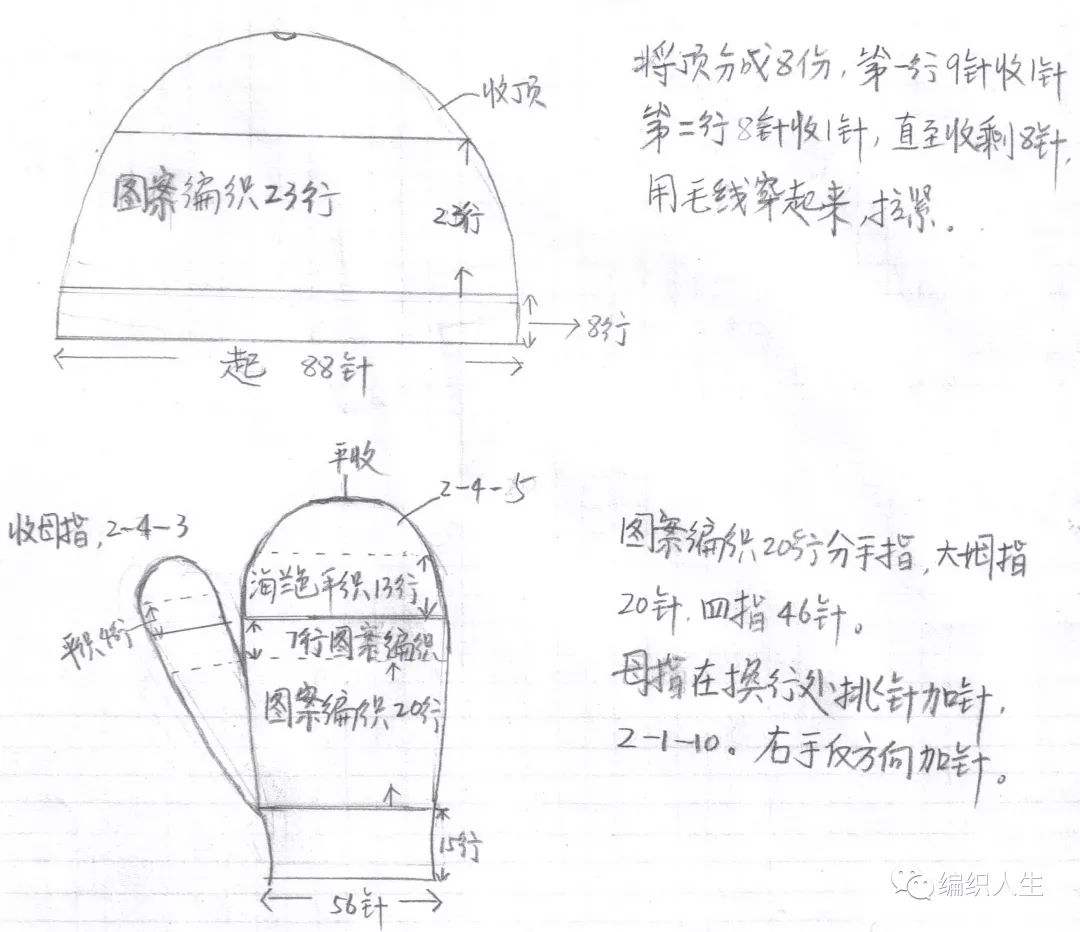 收顶
将顶分成8份，第一行9针收1针
第二行8针收1针，直至收剩8针，
用毛线穿起来，拉紧。
图案编织23行
23行
8行
起 88针
平收
2-4-5
收母指，2-4-3
海兰色平织13行
平织4行
7行图案编织
图案编织20行
15行
56针
图案编织20行分手指，大姆指
20针，四指46针。
母指在换行处挑针加针，
2-1-10。右手反方向加针。
编织人生